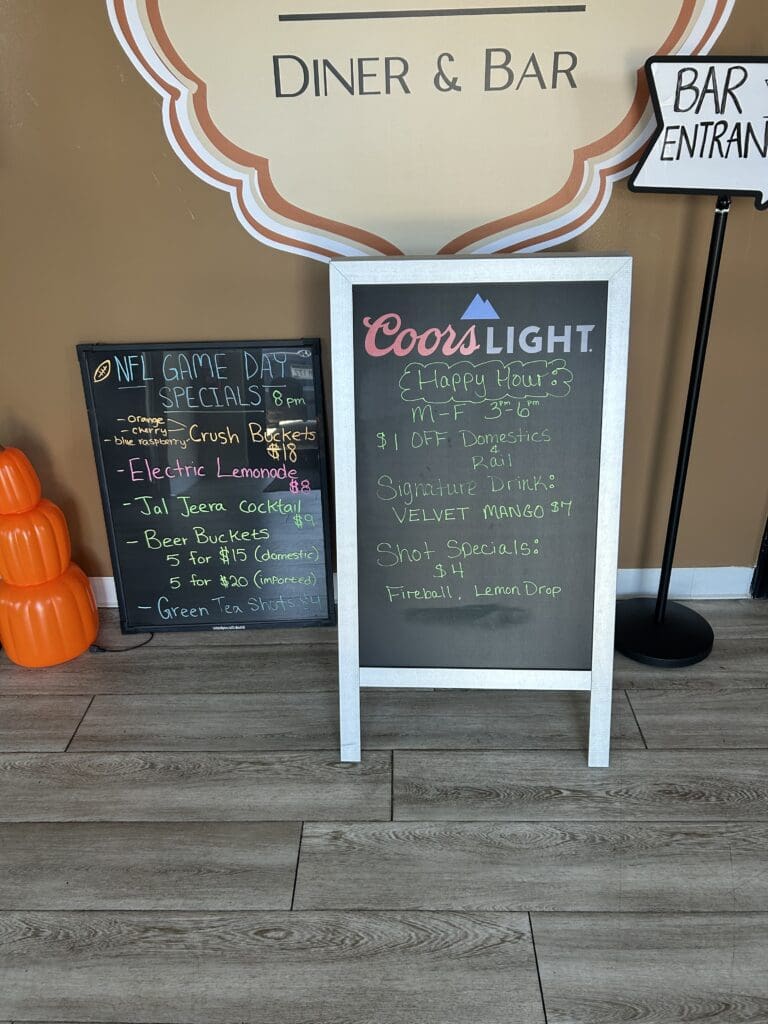 DINER & BAR
BAR
ENTRAN
NFL GAME DAY
SPECIALS 8pm
- orange
- cherry
- blue raspberry
Crush Buckets
$18
- Electric Lemonade
$8
- Jal Jeera cocktail
$9
- Beer Buckets
5 for $15 (domestic)
5 for $20 (imported)
- Green Tea Shots $4
Coors LIGHT
Happy Hour:
M-F 3pm-6pm
$1 OFF Domestics
&
Rail
Signature Drink:
VELVET MANGO $7
Shot Specials:
$4
Fireball, Lemon Drop